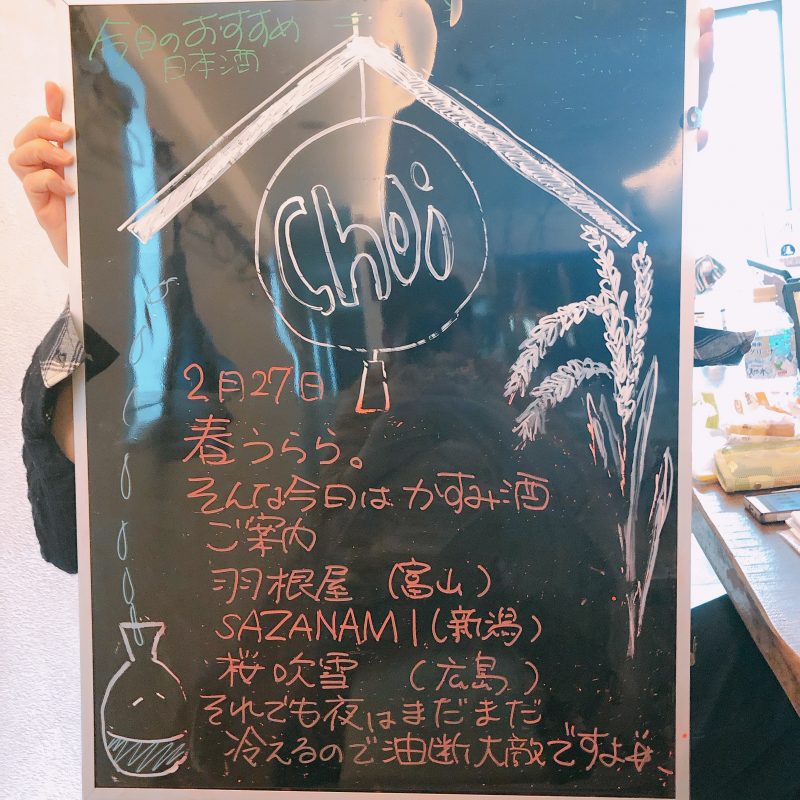 今日のおすすめ
日本酒
Choi
2月27日
春うらら。
そんな今日は かすみ酒
ご案内
羽根屋 (富山)
SAZANAMI (新潟)
桜吹雪 (広島)
それでも夜はまだまだ
冷えるので油断大敵ですよ